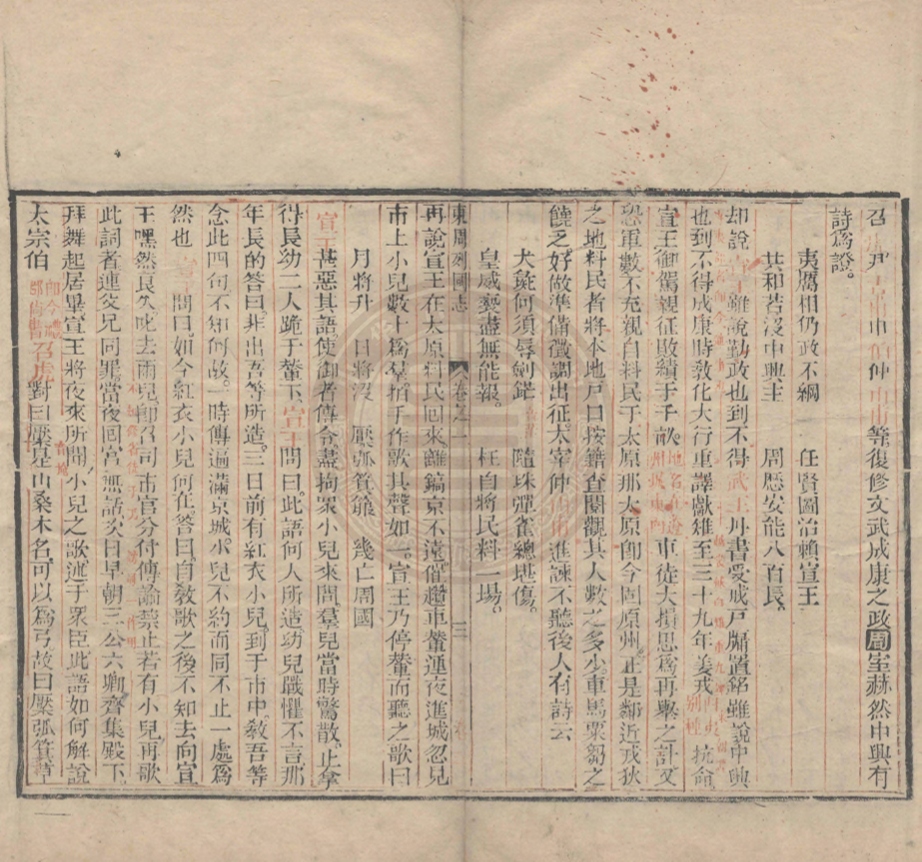 召虎尹吉甫申伯仲山甫等復修文武成康之政周室赫然中興有
詩爲證。
夷厲相仍政不綱 任賢圖治賴宣王
共和若沒中興主 周歷安能八百長。
却說宣王雖說勤政也到不得武王丹書受戒戸牖置銘雖說中興
也到不得成康時敎化大行重譯獻雉至三十九年姜戎抗命
宣王御駕親征敗績于千畝車徒大損思爲再舉之計又
恐軍數不充親自料民于太原那太原卽今固原州正是鄰近戎狄
之地料民者將本地戸口按籍查閱觀其人數之多少車馬粟芻之
饒乏好做準備徵調出征太宰仲山甫進諫不聽後人有詩云
犬彘何須辱劍鋩 隨珠彈雀總堪傷。
皇威褻盡無能報。 枉自將民料一塲。
東周列國志 卷之一 三
再說宣王在太原料民囘來離鎬京不遠催趲車輦連夜進城忽見
市上小兒數十爲羣拍手作歌其聲如一。宣王乃停輦而聽之歌曰
月將升 日將沒 檿弧箕箙 幾亡周國
宣王甚惡其語使御者傳令盡拘衆小兒來問羣兒當時驚散止拿
得長幼二人跪于輦下宣王問曰。此語何人所造幼兒戰懼不言那
年長的答曰非出吾等所造。三日前有紅衣小兒到于市中敎吾等
念此四句不知何故。一時傳遍滿京城小兒不約而同不止一處爲
然也 問曰如今紅衣小兒何在答曰自敎歌之後不知去向宣
王嘿然良久叱去兩兒卽召司市官分付傳諭禁止若有小兒再歌
此詞者連父兄同罪當夜囘宮無話次日早朝三公六卿齊集殿下
拜舞起居畢宣王將夜來所聞小兒之歌述于衆臣此語如何解說
太宗伯召虎對曰檿是山桑木名可以爲弓故曰檿弧箕草